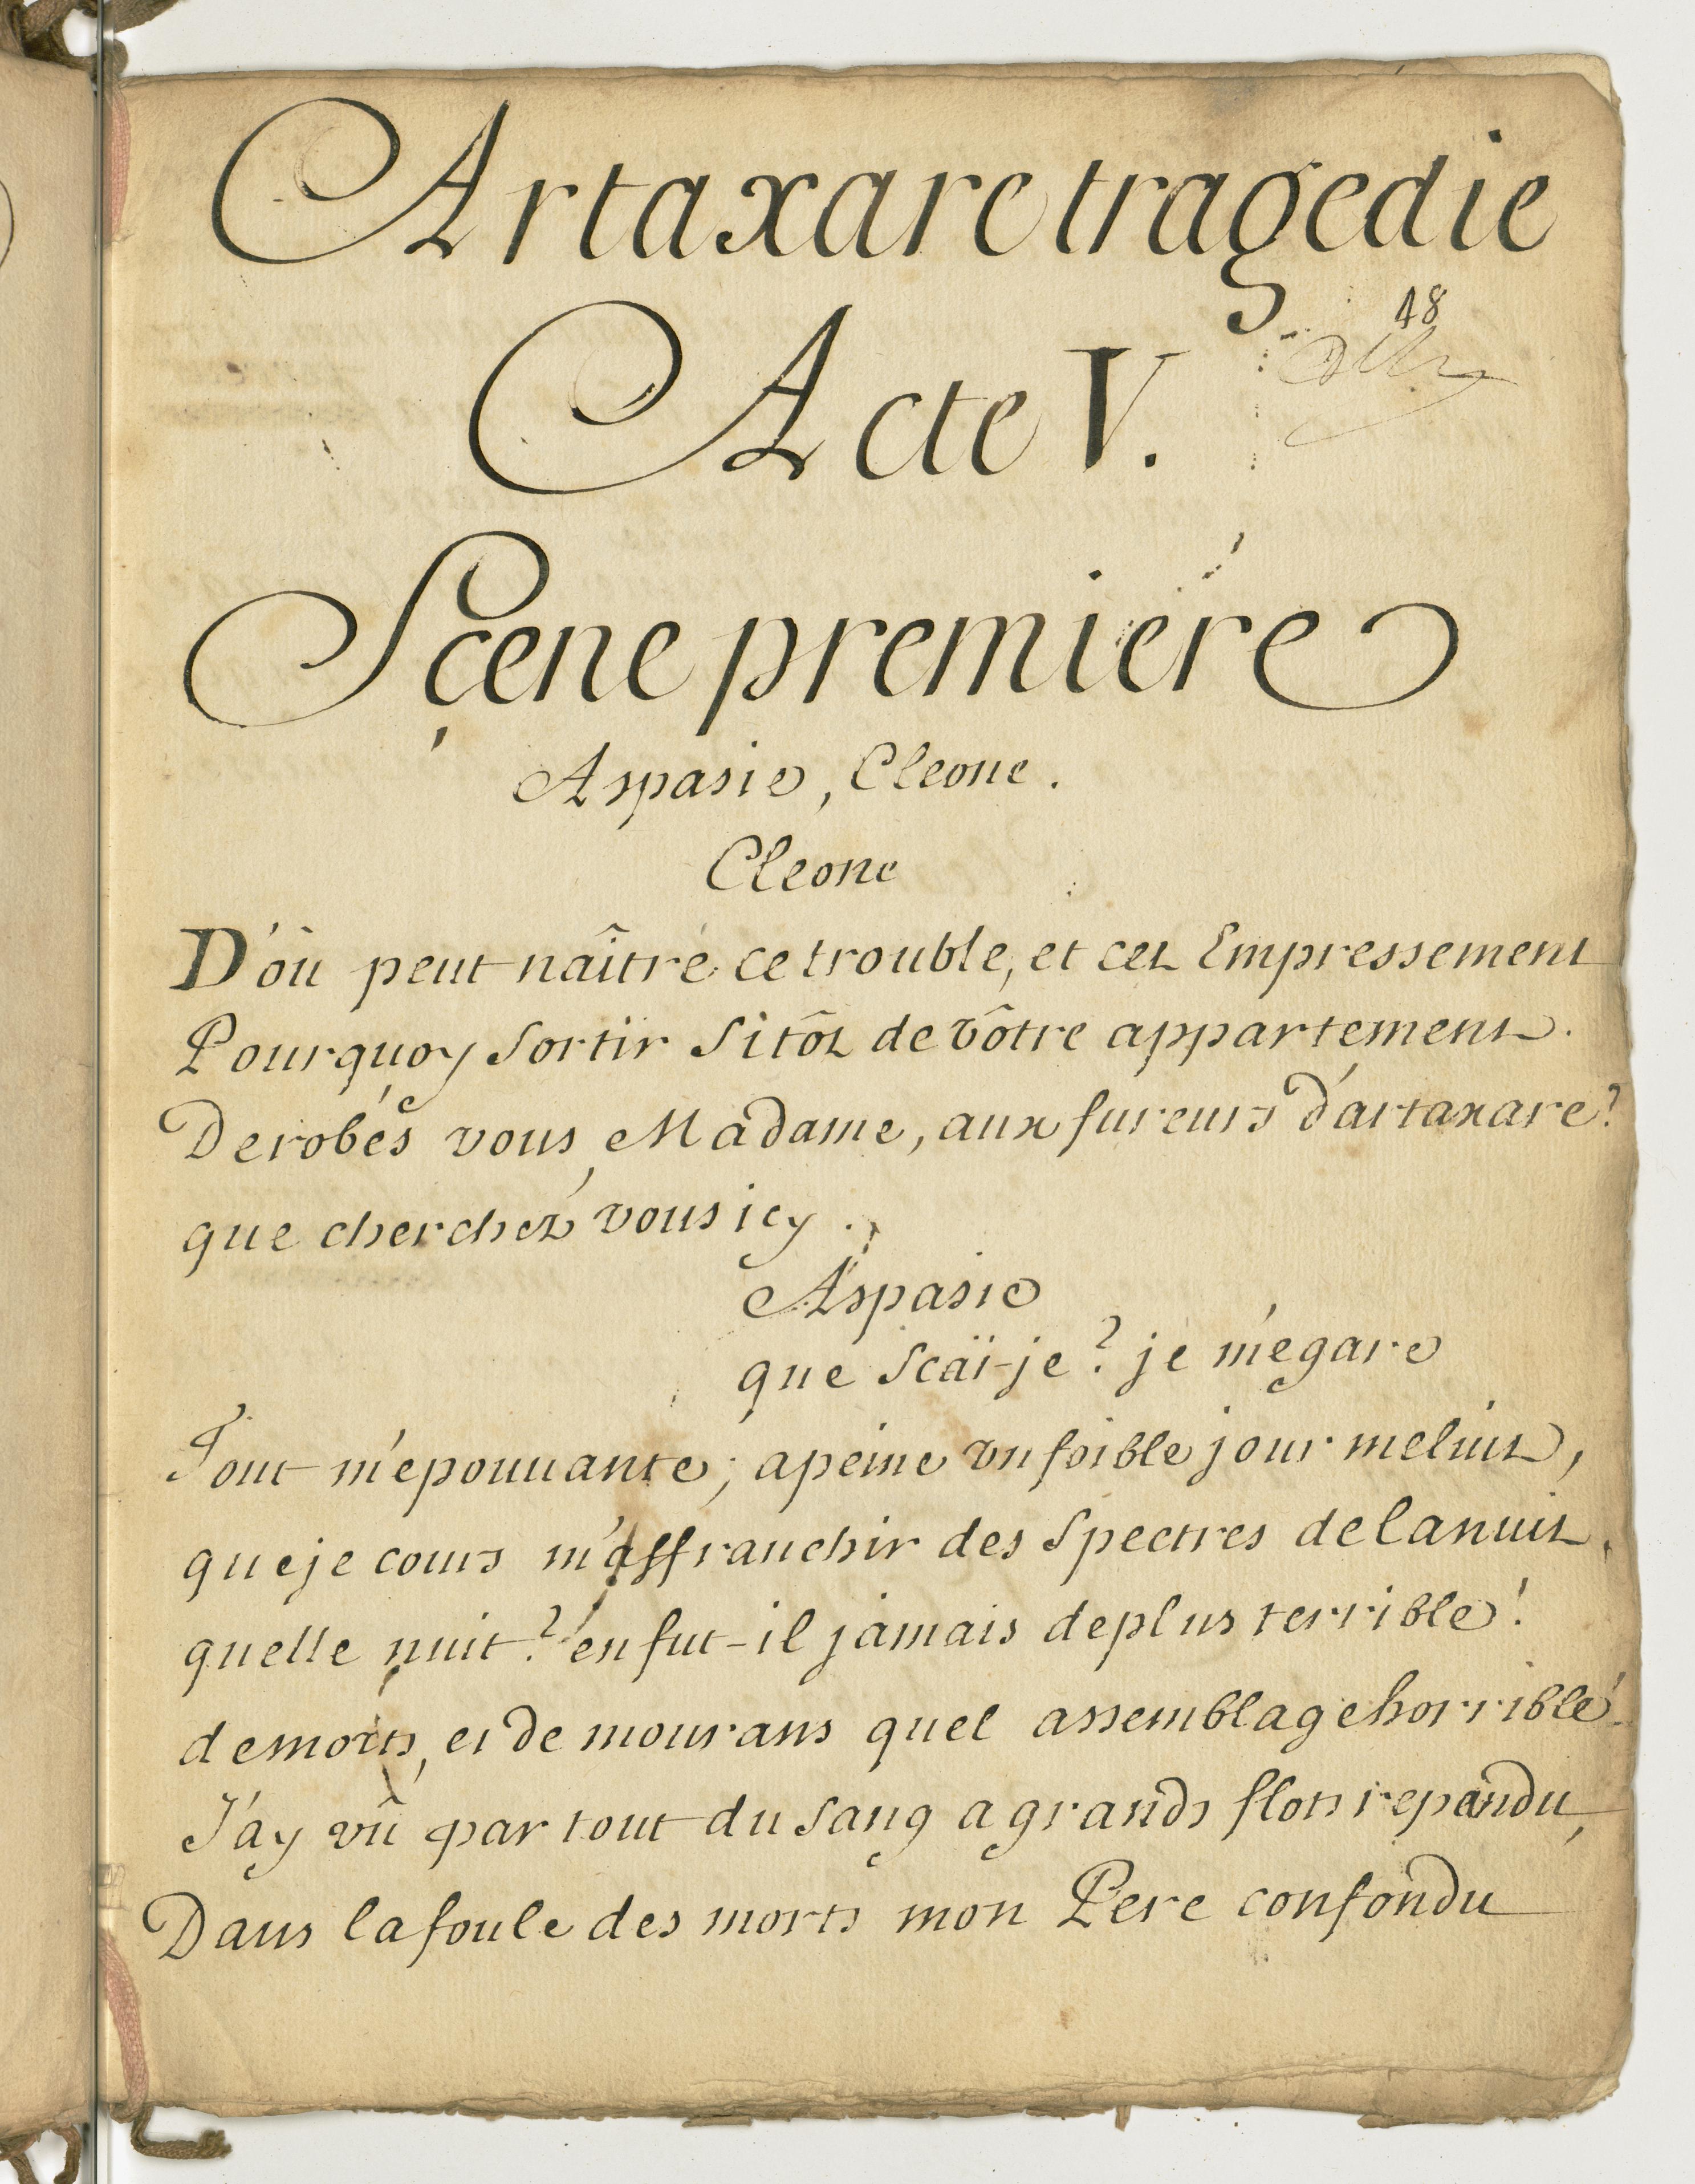 Artaxare tragedie
48
Acte V.
Scene premiére
Aspasie, Cleone.
Cleone
D'où peut naître ce trouble, et cet Empressement
Pourquoy sortir sitôt de vôtre appartement.
Derobés vous, Madame, aux fureurs d'artaxare?
que cherchez vous icy.
Aspasie
que scai-je? je m'egare
Tout m'epouuante; apeine vn foible jour meluit,
que je cours m'affranchir des spectres de la nuit.
quelle nuit? en fut-il jamais de plus terrible!
de morts, et de mourans quel assemblage horrible!
J'ay vû par tout du sang a grands flots repandu,
Dans la foule des morts mon Pere confondu